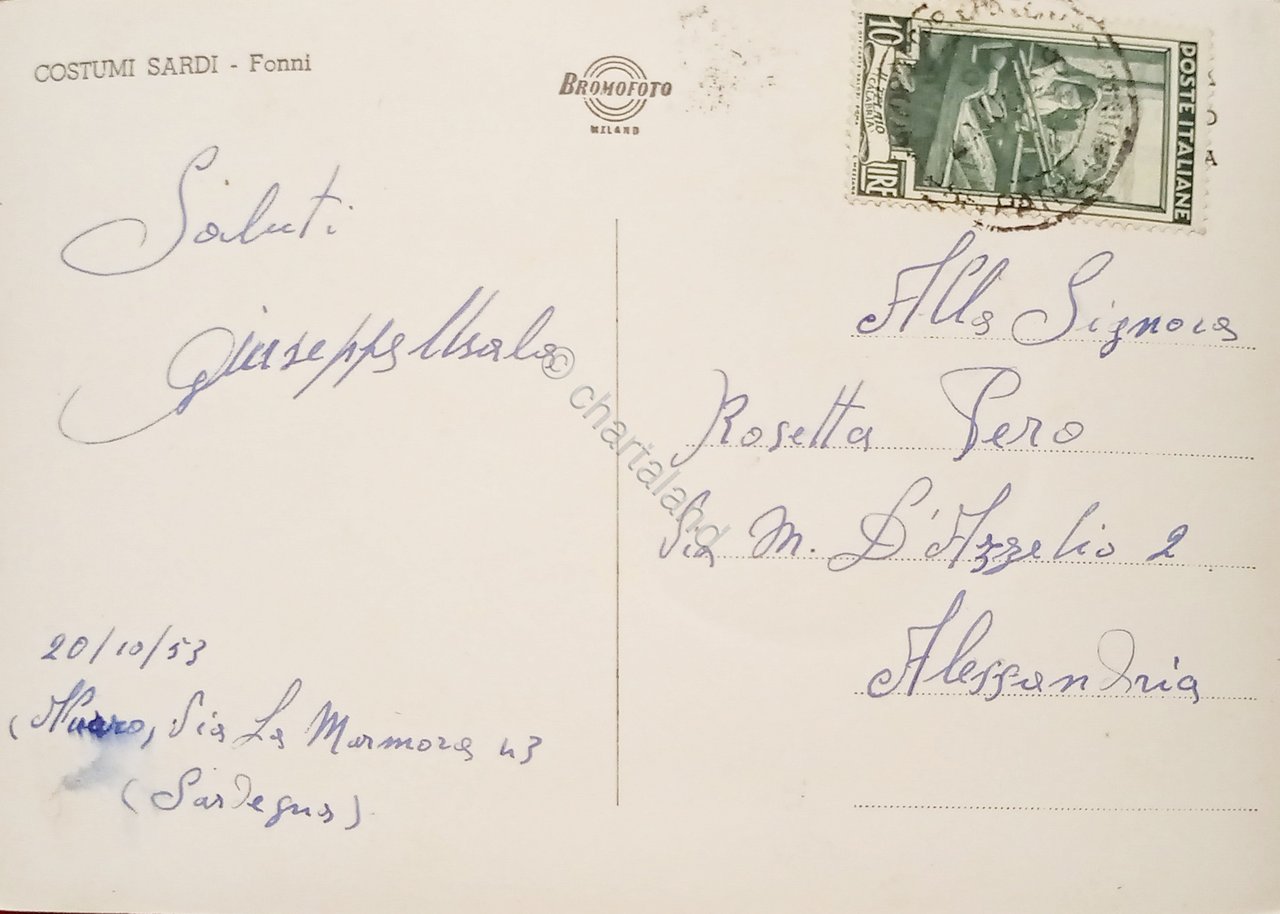 COSTUMI SARDI - Fonni
BROMOFOTO
MILANO
10
LIRE
POSTE ITALIANE
IL TELAIO
CALABRIA
Saluti
Giuseppe Usala
20/10/53
(Nuoro, Via La Marmora 43
(Sardegna)
Alla Signora
Rosetta Pero
Via M. D'Azzelio 2
Alessandria
© chartaland